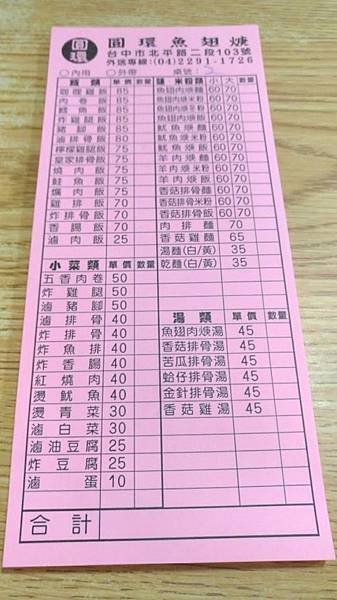 圓環
圓環魚翅焿
台中市北平路二段103號
外送專線:(04)2291-1726
○內用 ○外帶 桌號:
飯類 單價 數量
咖哩雞飯 85
肉卷飯 85
魷魚飯 85
炸雞腿飯 85
豬腳飯 85
滷排骨飯 80
檸檬雞腿飯 75
皇家排骨飯 75
燒肉飯 75
鮭魚飯 75
爌肉飯 75
雞排飯 70
炸排骨飯 70
香腸飯 70
滷肉飯 25
麵 米粉類 小 大 數量
魚翅肉焿麵 60 70
魚翅肉焿米粉 60 70
魚翅肉焿飯 60 70
魷魚焿麵 60 70
魷魚焿米粉 60 70
魷魚焿飯 60 70
羊肉焿麵 60 70
羊肉焿米粉 60 70
羊肉焿飯 60 70
香菇排骨麵 60 70
香菇排骨米粉 60 70
香菇排骨飯 60 70
肉排麵 70
香菇雞麵 65
湯麵(白/黃) 35
乾麵(白/黃) 35
小菜類 單價 數量
五香肉卷 50
炸雞腿 50
滷豬腳 50
滷排骨 40
炸排骨 40
炸魚排 40
炸香腸 40
紅燒肉 40
燙魷魚 40
燙青菜 30
滷白菜 30
滷油豆腐 25
炸豆腐 25
滷蛋 10
湯類 單價 數量
魚翅肉焿湯 45
香菇排骨湯 45
苦瓜排骨湯 45
蛤仔排骨湯 45
金針排骨湯 45
香菇雞湯 45
合計